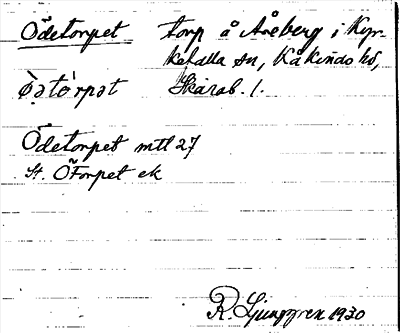 Ödetorpet torp å Åreberg i Kyr-
kefalla sn, Kåkinds hd,
Skarab. l.
Ödetorpet mtl 27
St. ÖTorpet ek
R. Ljunggren 1930